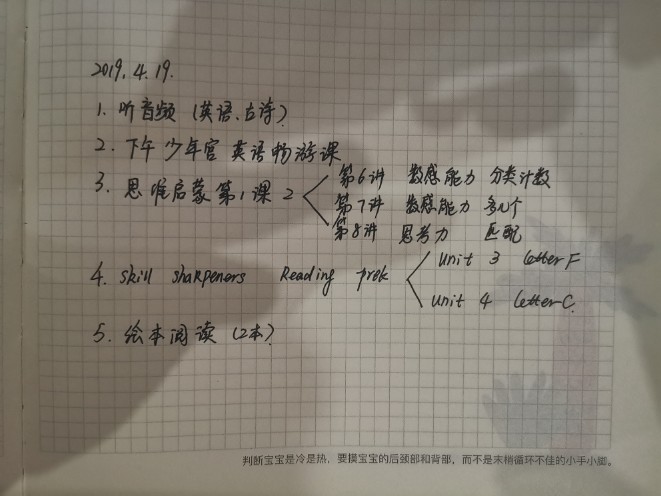 2019.4.19.
1. 听音频 (英语、古诗)
2. 下午 少年宫 英语畅游课
3. 思维启蒙第1课 2
第6讲 数感能力 分类计数
第7讲 数感能力 多几个
第8讲 思考力 匹配
4. skill sharpeners Reading prek
Unit 3 letter F
Unit 4 letter C.
5. 绘本阅读 (2本)
判断宝宝是冷是热，要摸宝宝的后颈部和背部，而不是末梢循环不佳的小手小脚。